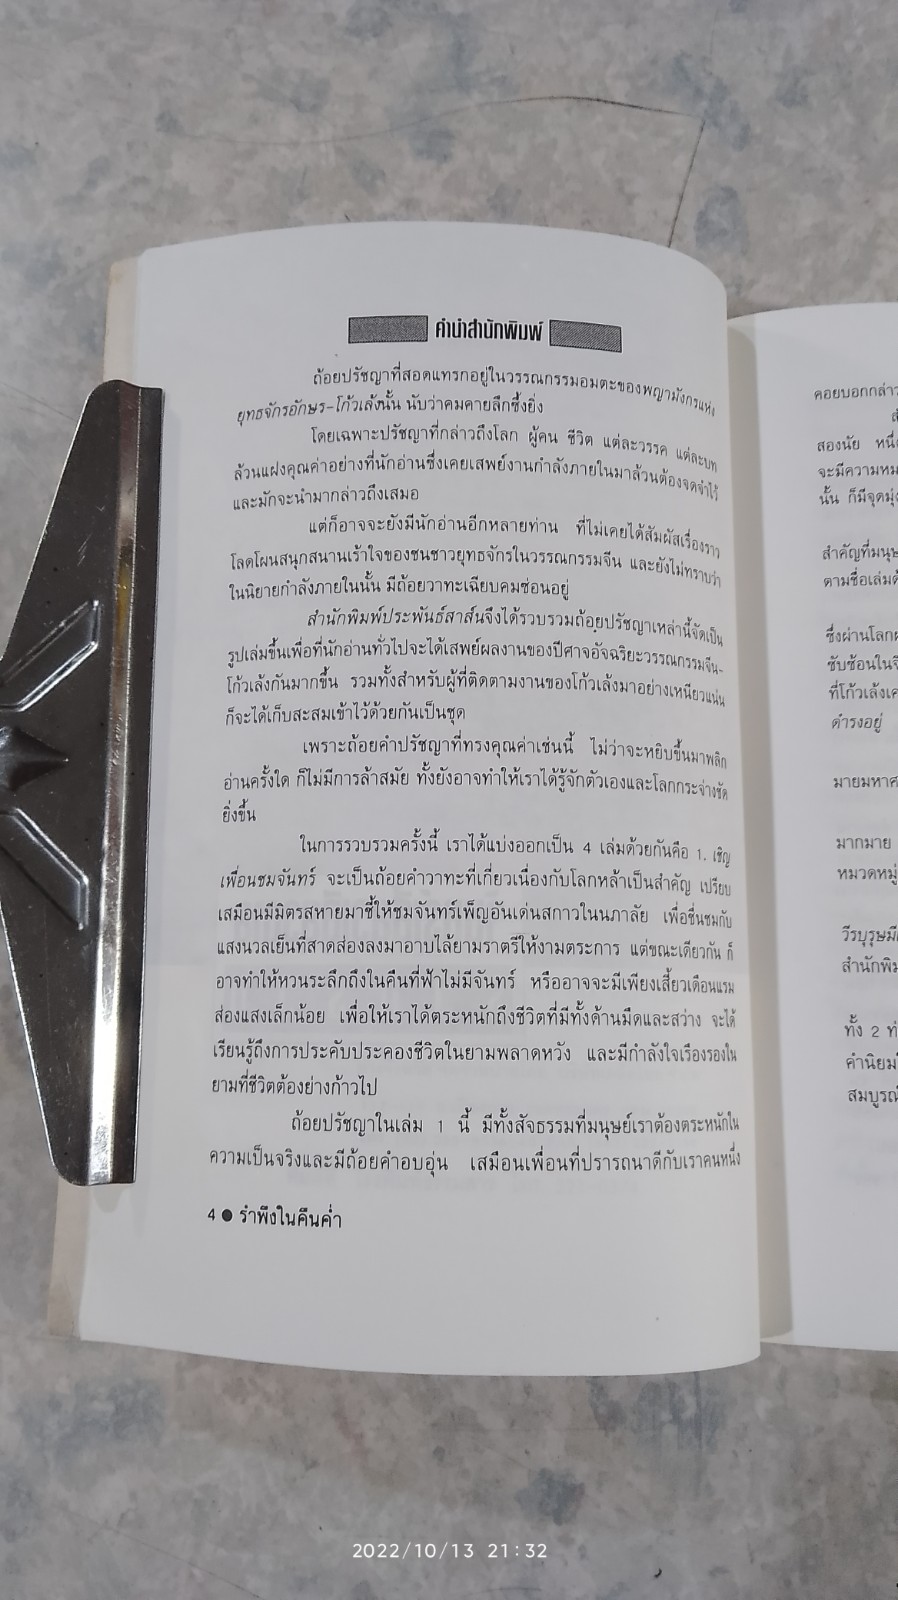 คำนำสำนักพิมพ์
ถ้อยปรัชญาที่สอดแทรกอยู่ในวรรณกรรมอมตะของพญามังกรแห่ง
ยุทธจักรอักษร-โก้วเล้งนั้น นับว่าคมคายลึกซึ้งยิ่ง
โดยเฉพาะปรัชญาที่กล่าวถึงโลก ผู้คน ชีวิต แต่ละวรรค แต่ละบท
ล้วนแฝงคุณค่าอย่างที่นักอ่านซึ่งเคยเสพย์งานกำลังภายในมาล้วนต้องจดจำไว้
และมักจะนำมากล่าวถึงเสมอ
แต่ก็อาจจะยังมีนักอ่านอีกหลายท่าน ที่ไม่เคยได้สัมผัสเรื่องราว
โลดโผนสนุกสนานเร้าใจของชนชาวยุทธจักรในวรรณกรรมจีน และยังไม่ทราบว่า
ในนิยายกำลังภายในนั้น มีถ้อยวาทะเฉียบคมซ่อนอยู่
สำนักพิมพ์ประพันธ์สาส์นจึงได้รวบรวมถ้อยปรัชญาเหล่านี้จัดเป็น
รูปเล่มขึ้นเพื่อที่นักอ่านทั่วไปจะได้เสพย์ผลงานของปีศาจอัจฉริยะวรรณกรรมจีน-
โก้วเล้งกันมากขึ้น รวมทั้งสำหรับผู้ที่ติดตามงานของโก้วเล้งมาอย่างเหนียวแน่น
ก็จะได้เก็บสะสมเข้าไว้ด้วยกันเป็นชุด
เพราะถ้อยคำปรัชญาที่ทรงคุณค่าเช่นนี้ ไม่ว่าจะหยิบขึ้นมาพลิก
อ่านครั้งใด ก็ไม่มีการล้าสมัย ทั้งยังอาจทำให้เราได้รู้จักตัวเองและโลกกระจ่างชัด
ยิ่งขึ้น
ในการรวบรวมครั้งนี้ เราได้แบ่งออกเป็น 4 เล่มด้วยกันคือ 1. เชิญ
เพื่อนชมจันทร์ จะเป็นถ้อยคำวาทะที่เกี่ยวเนื่องกับโลกหล้าเป็นสำคัญ เปรียบ
เสมือนมีมิตรสหายมาชี้ให้ชมจันทร์เพ็ญอันเด่นสกาวในนภาลัย เพื่อชื่นชมกับ
แสงนวลเย็นที่สาดส่องลงมาอาบไล้ยามราตรีให้งามตระการ แต่ขณะเดียวกัน ก็
อาจทำให้หวนระลึกถึงในคืนที่ฟ้าไม่มีจันทร์ หรืออาจจะมีเพียงเสี้ยวเดือนแรม
ส่องแสงเล็กน้อย เพื่อให้เราได้ตระหนักถึงชีวิตที่มีทั้งด้านมืดและสว่าง จะได้
เรียนรู้ถึงการประคับประคองชีวิตในยามพลาดหวัง และมีกำลังใจเรืองรองใน
ยามที่ชีวิตต้องย่างก้าวไป
ถ้อยปรัชญาในเล่ม 1 นี้ มีทั้งสัจธรรมที่มนุษย์เราต้องตระหนักใน
ความเป็นจริงและมีถ้อยคำอบอุ่น เสมือนเพื่อนที่ปรารถนาดีกับเราคนหนึ่ง
4 ● รำพึงในคืนค่ำ
คอยบอกกล่าว
สองนัย หนึ่
จะมีความหม
นั้น ก็มีจุดมุ่ง
สำคัญที่มนุษ
ตามชื่อเล่มด้
ซึ่งผ่านโลก
ซับซ้อนในจิ
ที่โก้วเล้งเค
ดำรงอยู่
มายมหาศ
มากมาย
หมวดหมู่
วีรบุรุษมี
สำนักพิม
ทั้ง 2 ท่
คำนิยม
สมบูรณ์
2022/10/13 21:32